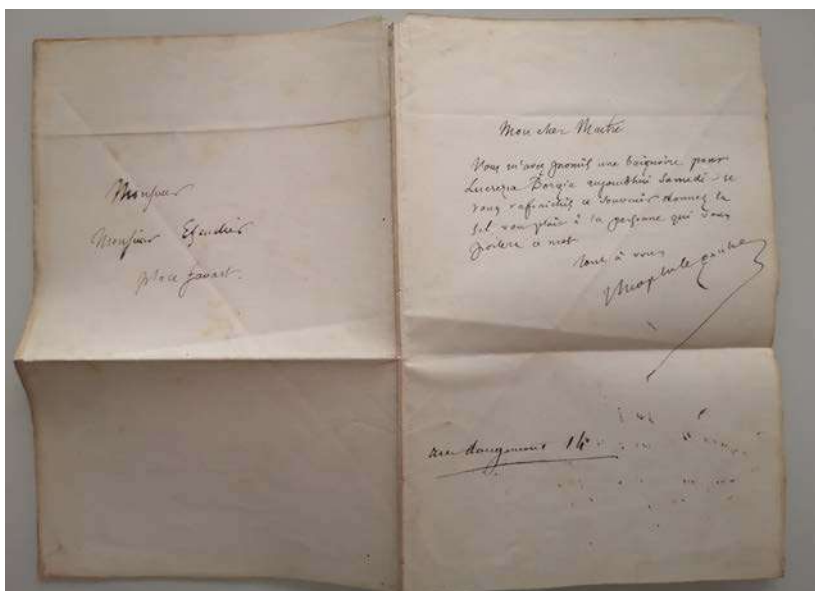 Monsieur
Monsieur Escudier
place favart.
Mon cher Maitre
Vous m'avez promis une baignoire pour
Lucrezia Borgia aujourdhui Samedi - je
vous rafraichis ce souvenir donnez la
sil vous plait à la personne qui vous
portera ce mot
tout à vous
théophile gautier
rue rougemont 14